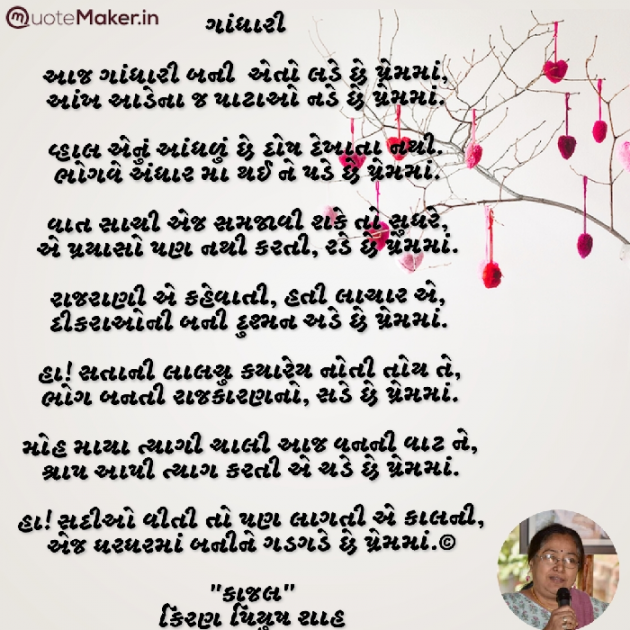 QuoteMaker.in
ગાંધારી
આજ ગાંધારી બની એતો લડે છે પ્રેમમાં,
આંખ આડેના જ પાટાઓ નડે છે પ્રેમમાં.
વ્હાલ એનું આંધળું છે દોષ દેખાતા નથી.
ભોગવે અંધાર મા થઈ ને પડે છે પ્રેમમાં.
વાત સાચી એજ સમજાવી શકે તો સુધરે,
એ પ્રયાસો પણ નથી કરતી, રડે છે પ્રેમમાં.
રાજરાણી એ કહેવાતી, હતી લાચાર એ,
દીકરાઓની બની દુશ્મન અડે છે પ્રેમમાં.
હા! સતાની લાલચુ કયારેય નોતી તોય તે,
ભોગ બનતી રાજકારણનો, સડે છે પ્રેમમાં.
મોહ માયા ત્યાગી ચાલી આજ વનની વાટ ને,
શ્રાપ આપી ત્યાગ કરતી એ ચડે છે પ્રેમમાં.
હા! સદીઓ વીતી તો પણ લાગતી એ કાલની,
એજ ઘરઘરમાં બનીને ગડગડે છે પ્રેમમાં.©
"કાજલ"
કિરણ પિયુષ શાહ